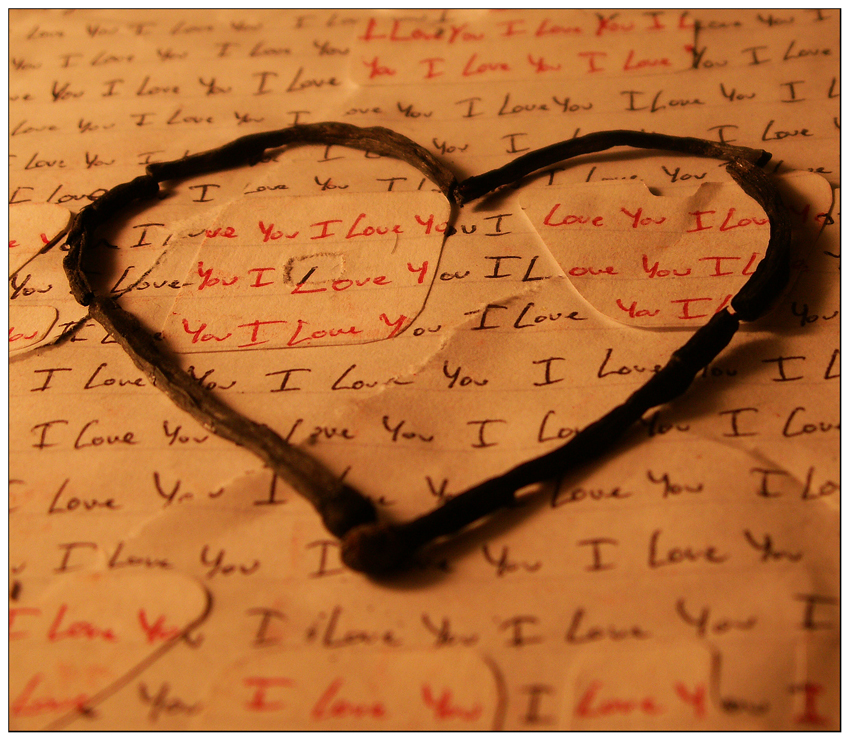 Love You I Love You I Love You I
L Love You I Love You I Love You I
You I Love You I Love You
You I Love You I Love You I Love You I Love You I
Love You I Love You I Love You I Love You I Love You I L
Love You I Love You I Love You I Love You I
I Love You I Love You I Love You I Love
I Love You I Love You I Love You
You I Love You I Love You I Love You I Love You
You I Love You I Love You I Love You I L
You I Love You I Love You I L You
I Love You I Love You I Love You I L
I Love You I Love You I Love You I Love
I Love You I Love You I Love You I Lo
You I Love You I Love You I Love You
I Love You I Love You I Love You I
Love You I Love You I Love You I